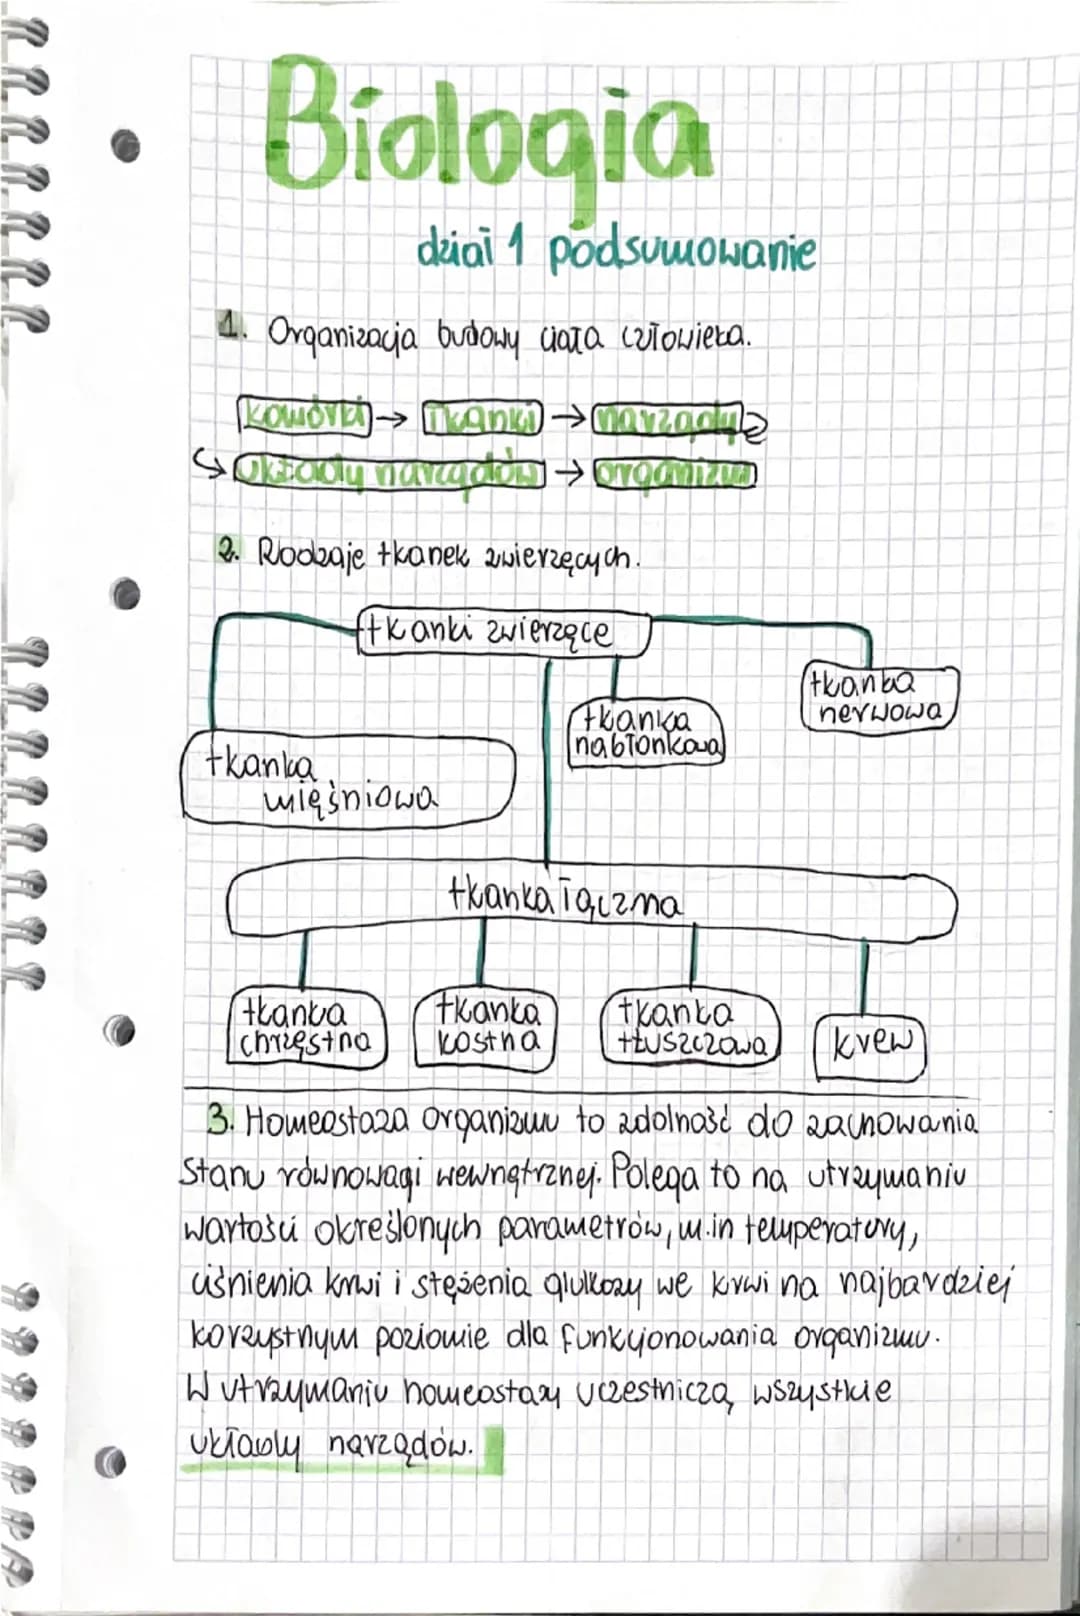 Biologia
dział 1 podsumowanie
1. Organizacja budowy ciała człowieka.
komórki → tkanki → narządy
układy narządów → organizm
2. Rodzaje tkanek zwierzęcych.
tkanki zwierzęce
tkanka
nerwowa
tkanka
nabłonkowa
tkanka
mięśniowa
tkanka łączna
tkanka
chrzęstna
tkanka
kostna
tkanka
tłuszczowa
krew
3. Homeostaza organizmu to zdolność do zachowania
stanu równowagi wewnętrznej. Polega to na utrzymaniu
wartości określonych parametrów, m.in temperatury,
ciśnienia krwi i stężenia glukozy we krwi na najbardziej
korzystnym poziomie dla funkcjonowania organizmu.
W utrzymaniu homeostazy uczestniczą wszystkie
układy narządów.